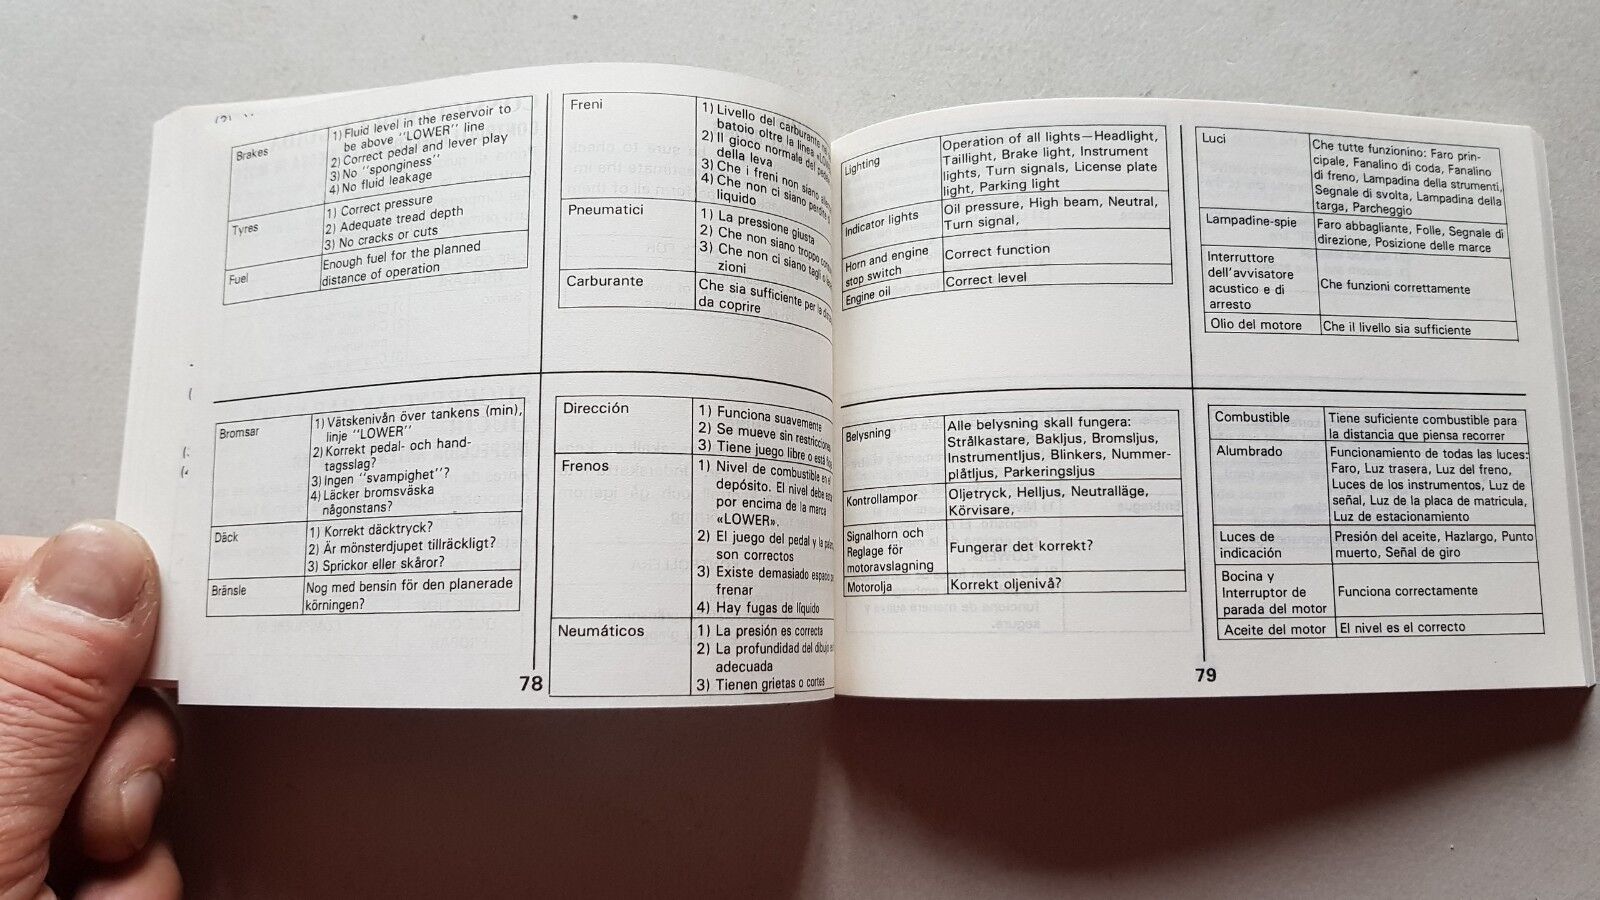 Brakes
1) Fluid level in the reservoir to
be above "LOWER" line
2) Correct pedal and lever play
3) No "sponginess"
4) No fluid leakage
Tyres
1) Correct pressure
2) Adequate tread depth
3) No cracks or cuts
Fuel
Enough fuel for the planned
distance of operation
Freni
1) Livello del carburante
batoio oltre la linea
2) Il gioco normale del
della leva
3) Che i freni non siano
4) Che non ci siano perdite
liquido
Pneumatici
1) La pressione giusta
2) Che non siano troppo
3) Che non ci siano tagli o
zioni
Carburante
Che sia sufficiente per la
da coprire
Bromsar
1) Vätskenivån över tankens (min),
linje "LOWER"
2) Korrekt pedal- och hand-
tagsslag?
3) Ingen "svampighet"?
4) Läcker bromsväska
någonstans?
Däck
1) Korrekt däcktryck?
2) Är mönsterdjupet tillräckligt?
3) Sprickor eller skåror?
Bränsle
Nog med bensin för den planerade
körningen?
Dirección
1) Funciona suavemente
2) Se mueve sin restricciones
3) Tiene juego libre o está
Frenos
1) Nivel de combustible en el
depósito. El nivel debe
por encima de la marca
«LOWER».
2) El juego del pedal y la
son correctos
3) Existe demasiado espacio
frenar
4) Hay fugas de líquido
Neumáticos
1) La presión es correcta
2) La profundidad del dibujo
adecuada
3) Tienen grietas o cortes
78
Lighting
Operation of all lights—Headlight,
Taillight, Brake light, Instrument
lights, Turn signals, License plate
light, Parking light
Indicator lights
Oil pressure, High beam, Neutral,
Turn signal,
Horn and engine
stop switch
Correct function
Engine oil
Correct level
Luci
Che tutte funzionino: Faro prin-
cipale, Fanalino di coda, Fanalino
di freno, Lampadina della strumenti,
Segnale di svolta, Lampadina della
targa, Parcheggio
Lampadine-spie
Faro abbagliante, Folle, Segnale di
direzione, Posizione delle marce
Interruttore
dell'avvisatore
acustico e di
arresto
Che funzioni correttamente
Olio del motore
Che il livello sia sufficiente
Belysning
Alle belysning skall fungera:
Strålkastare, Bakljus, Bromsljus,
Instrumentljus, Blinkers, Nummer-
plåtljus, Parkeringsljus
Kontrollampor
Oljetryck, Helljus, Neutralläge,
Körvisare,
Signalhorn och
Reglage för
motoravslagning
Fungerar det korrekt?
Motorolja
Korrekt oljenivå?
Combustible
Tiene suficiente combustible para
la distancia que piensa recorrer
Alumbrado
Funcionamiento de todas las luces:
Faro, Luz trasera, Luz del freno,
Luces de los instrumentos, Luz de
señal, Luz de la placa de matricula,
Luz de estacionamiento
Luces de
indicación
Presión del aceite, Hazlargo, Punto
muerto, Señal de giro
Bocina y
Interruptor de
parada del motor
Funciona correctamente
Aceite del motor
El nivel es el correcto
79